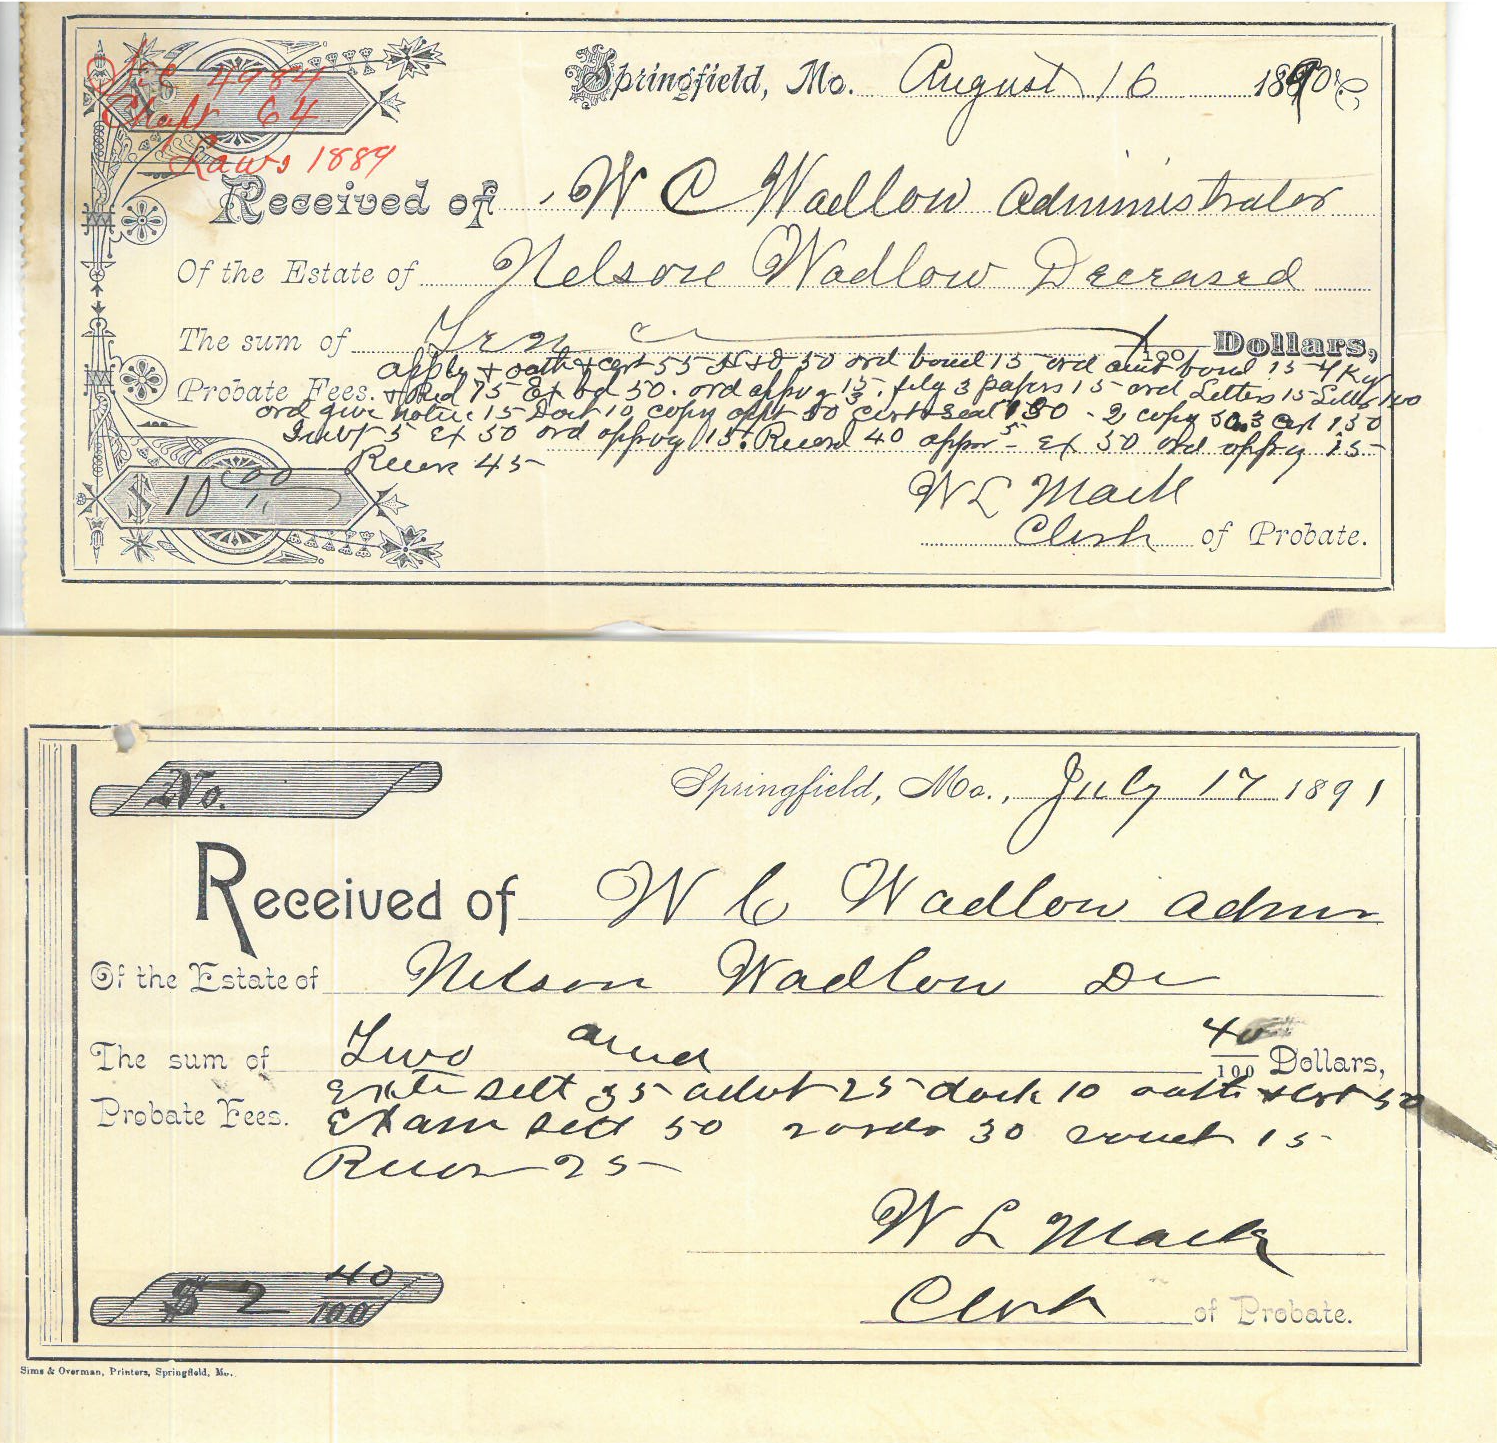 No. 4984
Chapt 64
Laws 1889
Springfield, Mo. August 16 1890
Received of W C Wadlow Administrator
Of the Estate of Nelson Wadlow Deceased
The sum of Ten /100 Dollars,
apply & oath & cert 55 50 ord bond 15 ord bond 15
Probate Fees. & Recd 75 Ex bd 50. ord appvg 15. filg 3 papers 15 ord Letters 15 Letters
ord give notice 15 Dock 10, copy appt 50 Cert & seal - 2 copy
Invt 5 Ex 50 ord appvg 15. Record 40 appr 5 - Ex 50 ord appvg 15
Recor 45
$ 10 00
W L Mack
Clerk of Probate.
No.
Springfield, Mo., July 17 1891
Received of W C Wadlow Admr
Of the Estate of Nelson Wadlow De
The sum of Two and 40/100 Dollars,
sett 35 advt 25 dock 10 oath & cert 50
Probate Fees. Exam sett 50 2 ords 30 2 vouct 15
Recor 25
W L Mack
$ 2 40/100
Clerk of Probate.
Sims & Overman, Printers, Springfield, Mo.